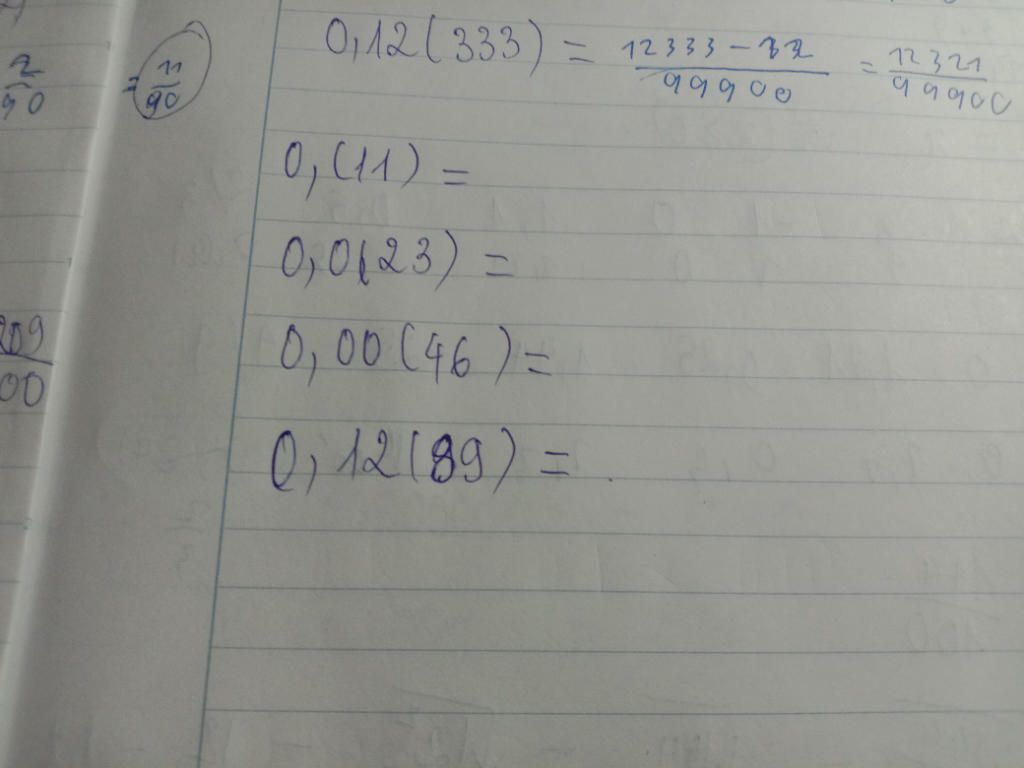 0,12(333) = 12333-12/99900 = 12321/99900
2/90
= 11/90
0,(11) =
0,0(23) =
0,00(46) =
209/00
0,12(89) =